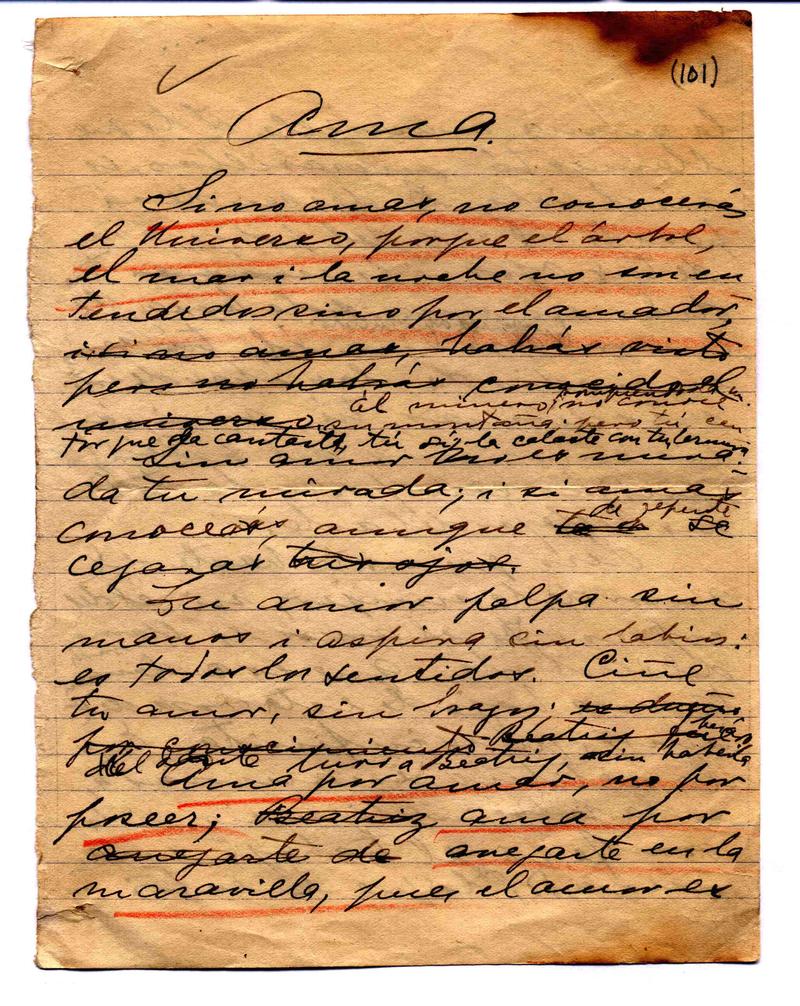 (101)
Ama.
Si no amas, no conocerás
el Universo, porque el árbol,
el mar i la noche no son en
tendidos sino por el amador,
i si no amas, habrás visto
pero no habrás conocido el
universo. El minero, no
su montaña pero tú
tú si la celeste con tu
Sin amor no es mira-
da tu mirada; i si amas
conocerás, aunque de repente se
cegaras tus ojos.
Tu amor palpa sin
manos i aspira sin labios:
es todos los sentidos. Ciñe
tu amor, sin brazos: es dueño
por conocimiento Beatriz
el Dante tuvo a Beatriz, sin haberla
Ama por amar, no por
poseer; Beatriz ama por
anegarte de anegarte en la
maravilla, pues el amor es